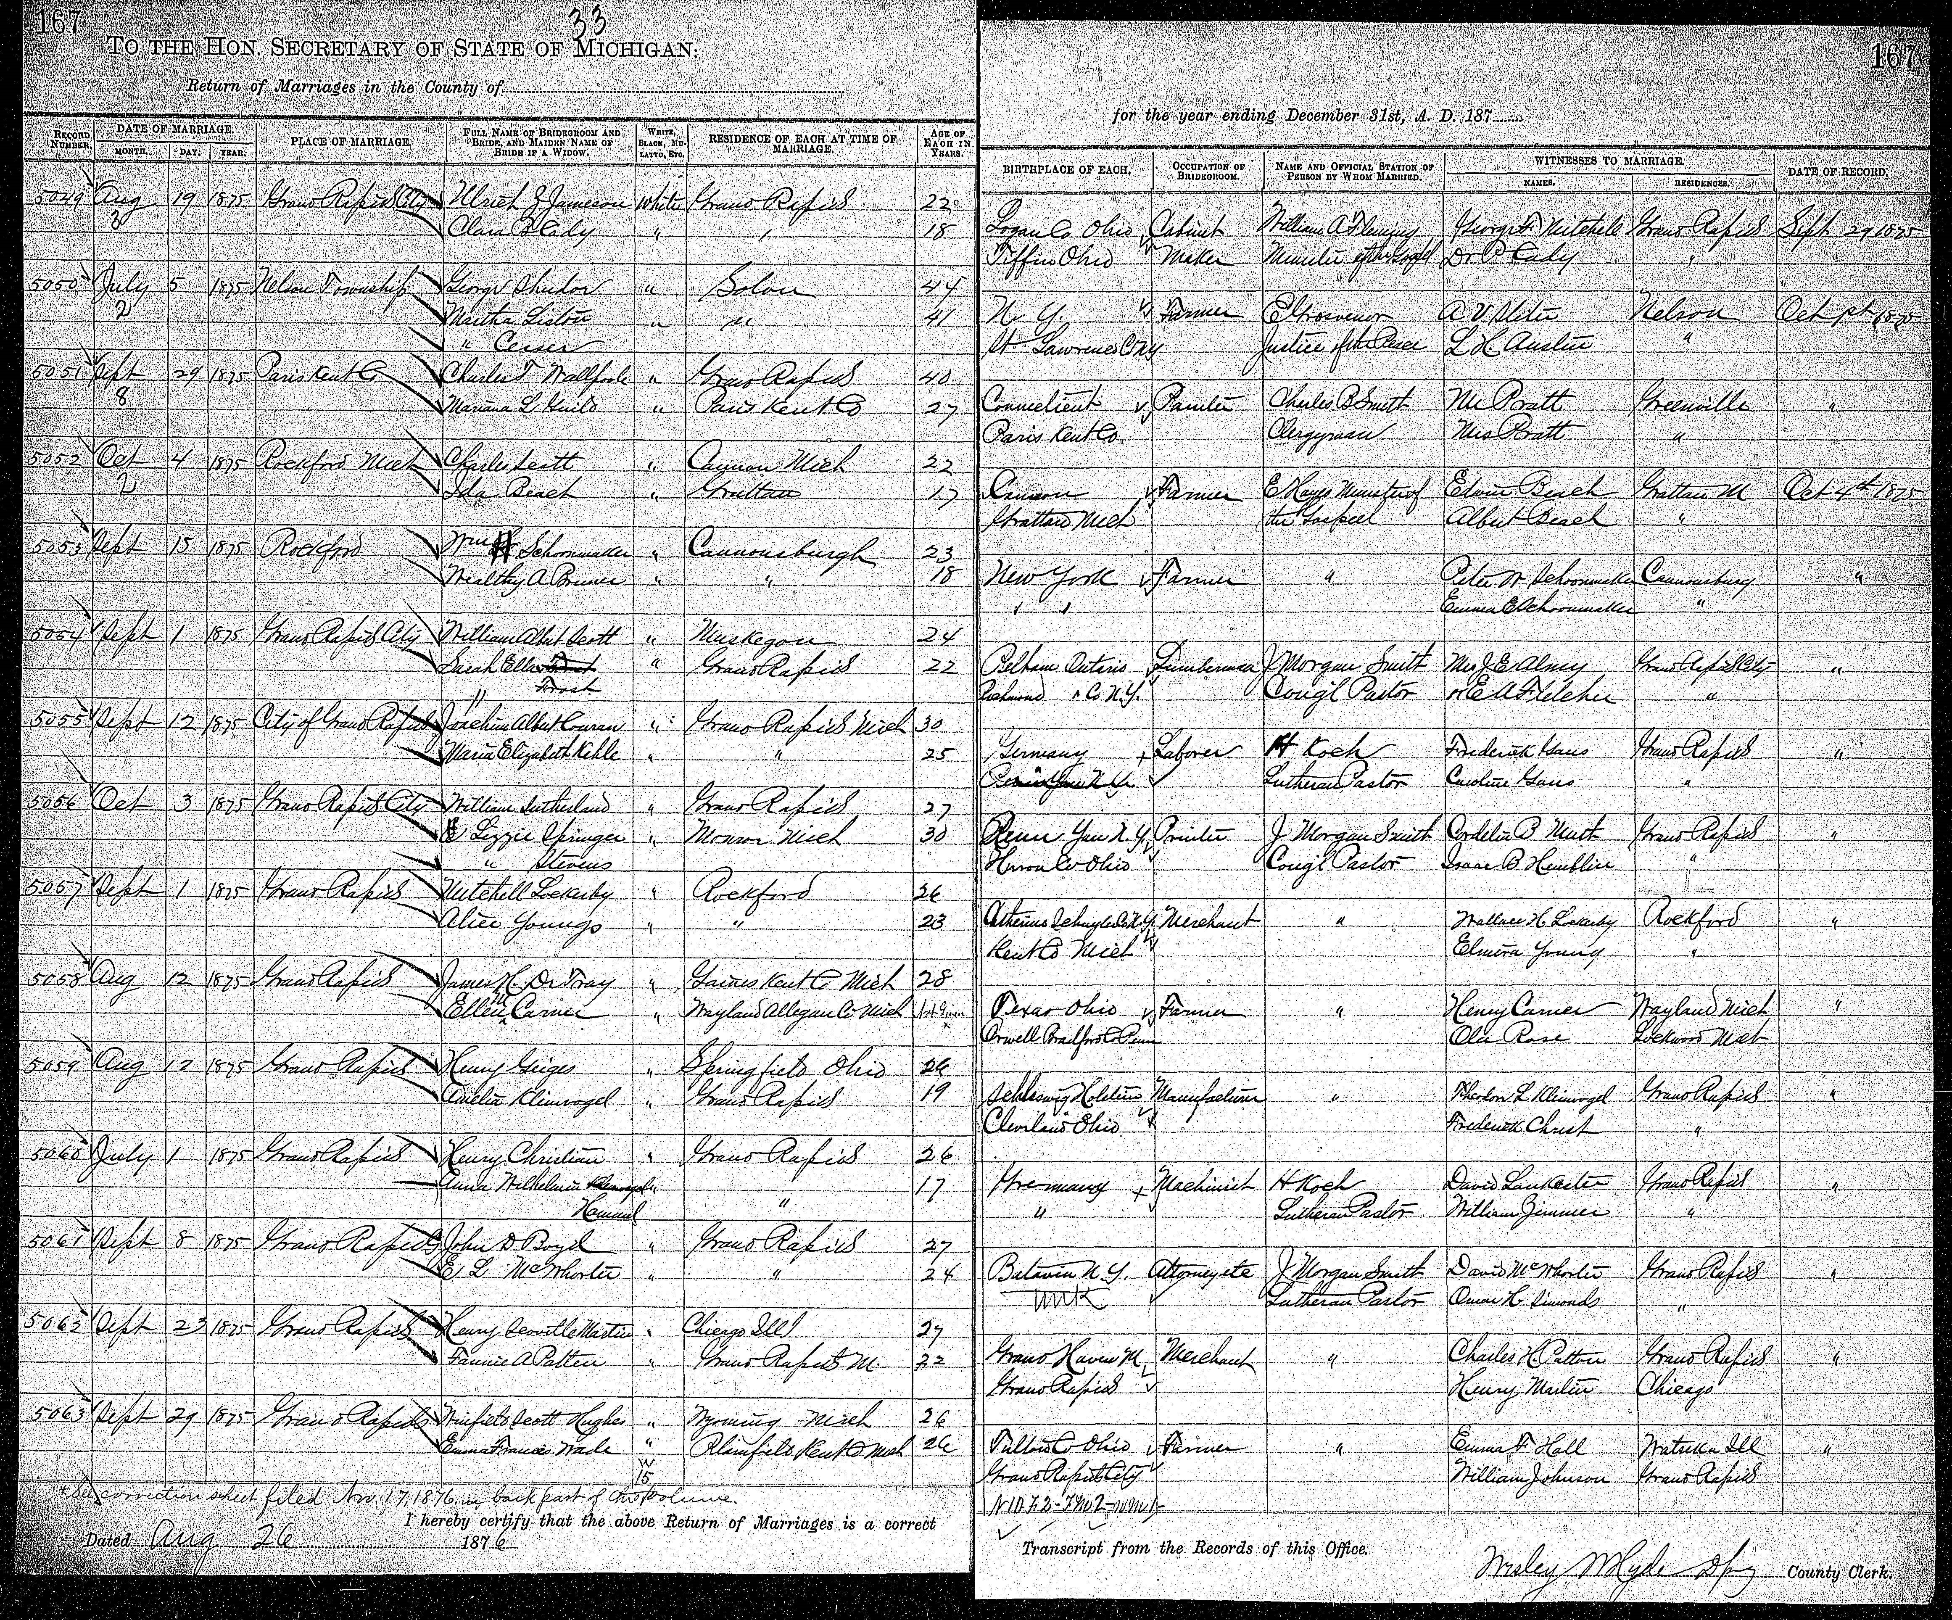 167
33
TO THE HON. SECRETARY OF STATE OF MICHIGAN:
Return of Marriages in the County of
RECORD NUMBER. DATE OF MARRIAGE. MONTH. DAY. YEAR. PLACE OF MARRIAGE. FULL NAME OF BRIDEGROOM AND BRIDE, AND MAIDEN NAME OF BRIDE IF A WIDOW. WHITE, BLACK, MULATTO, ETC. RESIDENCE OF EACH AT TIME OF MARRIAGE. AGE OF EACH IN YEARS.
5049 Aug 19 1875 Grand Rapids City Ulrich J Jameson White Grand Rapids 22
2 Clara B Cady " " 18
5050 July 5 1875 Nelson Township George " Solon 44
2 Martha Liston " " 41
"
5051 Sept 29 1875 Paris Kent Co Charles T Wallpole " Grand Rapids 40
8 Mariana L Guild " Paris Kent Co 27
5052 Oct 4 1875 Rockford Mich Charles Scott " Cannon Mich 22
2 Ida Beach " Grattan 17
5053 Sept 15 1875 Rockford Wm H Schoonmaker " Cannonsburgh 23
Wealthy A " " 18
5054 Sept 1 1875 Grand Rapids City William Albert Scott " Muskegon 24
Sarah Ella " Grand Rapids 22
" Frost
5055 Sept 12 1875 City of Grand Rapids Joachim Albert " Grand Rapids Mich 30
Maria Elizabeth Kehle " " 25
5056 Oct 3 1875 Grand Rapids City William Sutherland " Grand Rapids 27
E Lizzie Springer " Monroe Mich 30
" Stevens
5057 Sept 1 1875 Grand Rapids Mitchell Lockerby " Rockford 26
Alice Youngs " " 23
5058 Aug 12 1875 Grand Rapids James H. DeTray " Gaines Kent Co Mich 28
Ellen M Carner " Wayland Allegan Co Mich
5059 Aug 12 1875 Grand Rapids Henry Geiges " Springfield Ohio 26
Amelia Kleinvogel " Grand Rapids 19
5060 July 1 1875 Grand Rapids Henry Christian " Grand Rapids 26
Anna Wilhelmin " " 17
5061 Sept 8 1875 Grand Rapids John D Boyd " Grand Rapids 27
E L McWhorter " " 24
5063 Sept 23 1875 Grand Rapids Henry Scoville Martin " Chicago Ill 27
Fannie A Patten " Grand Rapids M 22
5063 Sept 29 1875 Grand Rapids Winfield Scott Hughes " Wyoming Mich 26
Emma Frances Wade " Plainfield Kent Co Mich 26
W
15
* See correction sheet filed Nov. 17, 1876 in back part of this volume.
I hereby certify that the above Return of Marriages is a correct
Dated Aug 26 1876
167
for the year ending December 31st, A. D. 187
BIRTHPLACE OF EACH. OCCUPATION OF BRIDEGROOM. NAME AND OFFICIAL STATION OF PERSON BY WHOM MARRIED. WITNESSES TO MARRIAGE. NAMES. RESIDENCES. DATE OF RECORD.
Logan Co Ohio Cabinet William A Fleming George F Mitchell Grand Rapids Sept 29 1875
Tiffin Ohio Maker Minister of the Gospel Dr P Cady "
N. Y. Farmer E Grosvenor A V Nelson Oct 1st 1875
St Lawrence Co NY Justice of the Peace L H Austin "
Connecticut Painter Charles B Smith Mr Pratt Greenville "
Paris Kent Co. Clergyman Mrs Pratt "
Cannon Farmer E Hays Minister of Edwin Beach Grattan M Oct 4th 1875
Grattan Mich the Gospel Albert Beach "
New York Farmer " Peter W Schoonmaker Cannonsburg "
" " Emma E Schoonmaker "
Pelham Ontario Lumberman J Morgan Smith Mrs J E Almy Grand Rapids City "
Richmond " Co N.Y. Congl Pastor E A Fletcher "
Germany Laborer H Koch Frederick Gans Grand Rapids "
Lutheran Pastor Caroline Gans "
Penn Yan N.Y. Printer J Morgan Smith Cordelia B Grand Rapids "
Huron Co Ohio Congl Pastor Isaac B Hamblin "
Merchant " Wallace H Lockerby Rockford "
Kent Co Mich Elmira Young "
Texas Ohio Farmer " Henry Carner Wayland Mich "
Orwell Bradford Co Penn Ola Rose
Schleswig Holstein Manufacturer " Theodore L Kleinvogel Grand Rapids "
Cleveland Ohio Frederick Christ "
Germany Machinist H Koch David Lankester Grand Rapids "
" Lutheran Pastor William Zimmer "
Batavia N.Y. Attorney etc J Morgan Smith David McWhorter Grand Rapids "
Unk Lutheran Pastor H. Simonds "
Grand Haven M Merchant " Charles H. Patten Grand Rapids "
Grand Rapids Henry Martin Chicago
Fulton Co Ohio Farmer " Emma F Hall Watseka Ill "
Grand Rapids City William Johnson Grand Rapids
Transcript from the Records of this Office.
Wesley W Hyde Dpy County Clerk.